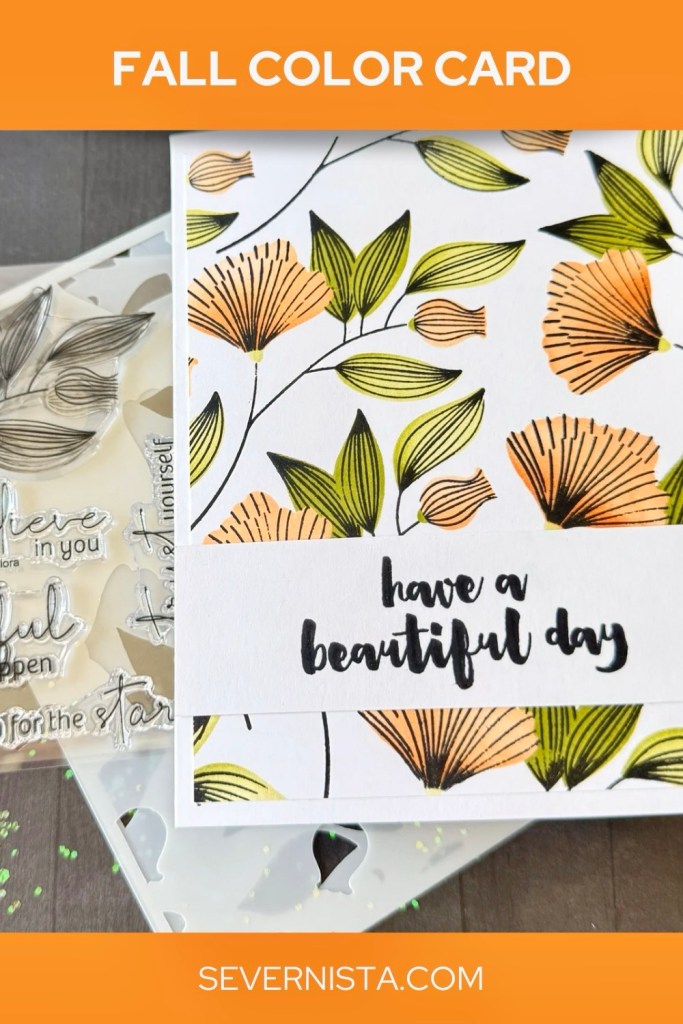 FALL COLOR CARD
in you
ppen
for the star
yourself
have a
beautiful day
SEVERNISTA.COM